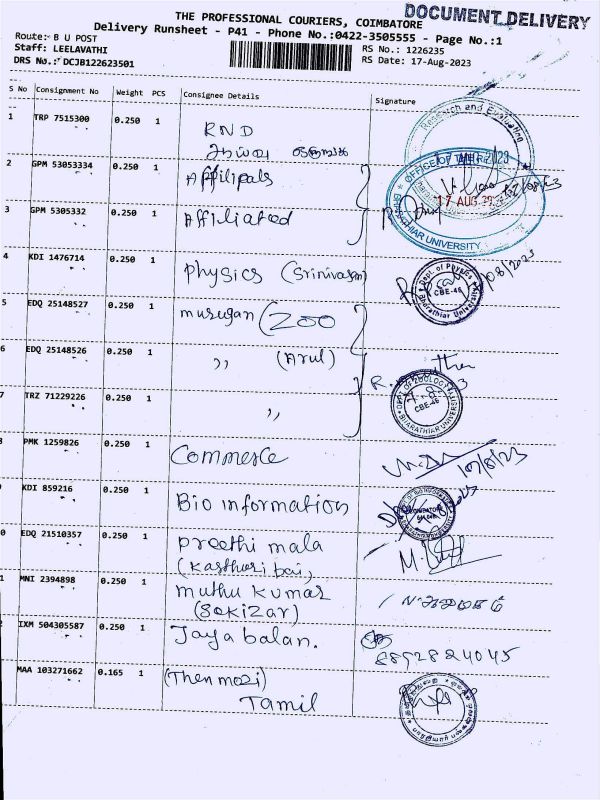 DOCUMENT DELIVERY
THE PROFESSIONAL COURIERS, COIMBATORE
Delivery Runsheet - P41 - Phone No.:0422-3505555 - Page No.:1
Route:- B U POST
Staff: LEELAVATHI
DRS No.: DCJB122623501
RS No.: 1226235
RS Date: 17-Aug-2023
S No Consignment No Weight PCS Consignee Details Signature
1 TRP 7515300 0.250 1 RND
2 GPM 53053334 0.250 1 Affilipals
3 GPM 5305332 0.250 1 Affiliated
Research and Evaluation
OFFICE OF THE
17 AUG 2023
BHARATHIAR UNIVERSITY
4 KDI 1476714 0.250 1 Physics (Srinivasan)
Dept. of Physics
CBE-46
Bharathiar University
5 EDQ 25148527 0.250 1 murugan (ZOO
6 EDQ 25148526 0.250 1 ,, (Arul)
7 TRZ 71229226 0.250 1 ,,
DEPT OF ZOOLOGY
CBE-46
BHARATHIAR UNIVERSITY
8 PMK 1259826 0.250 1 Commerce
17/8/23
9 KDI 859216 0.250 1 Bio information
0 EDQ 21510357 0.250 1 Preethi mala
(Kasthuri bai,
1 MNI 2394898 0.250 1 muthu kumar
(Sekizar)
2 IXM 504305587 0.250 1 Jaya balan.
8892824045
MAA 103271662 0.165 1 (Then mozi)
Tamil